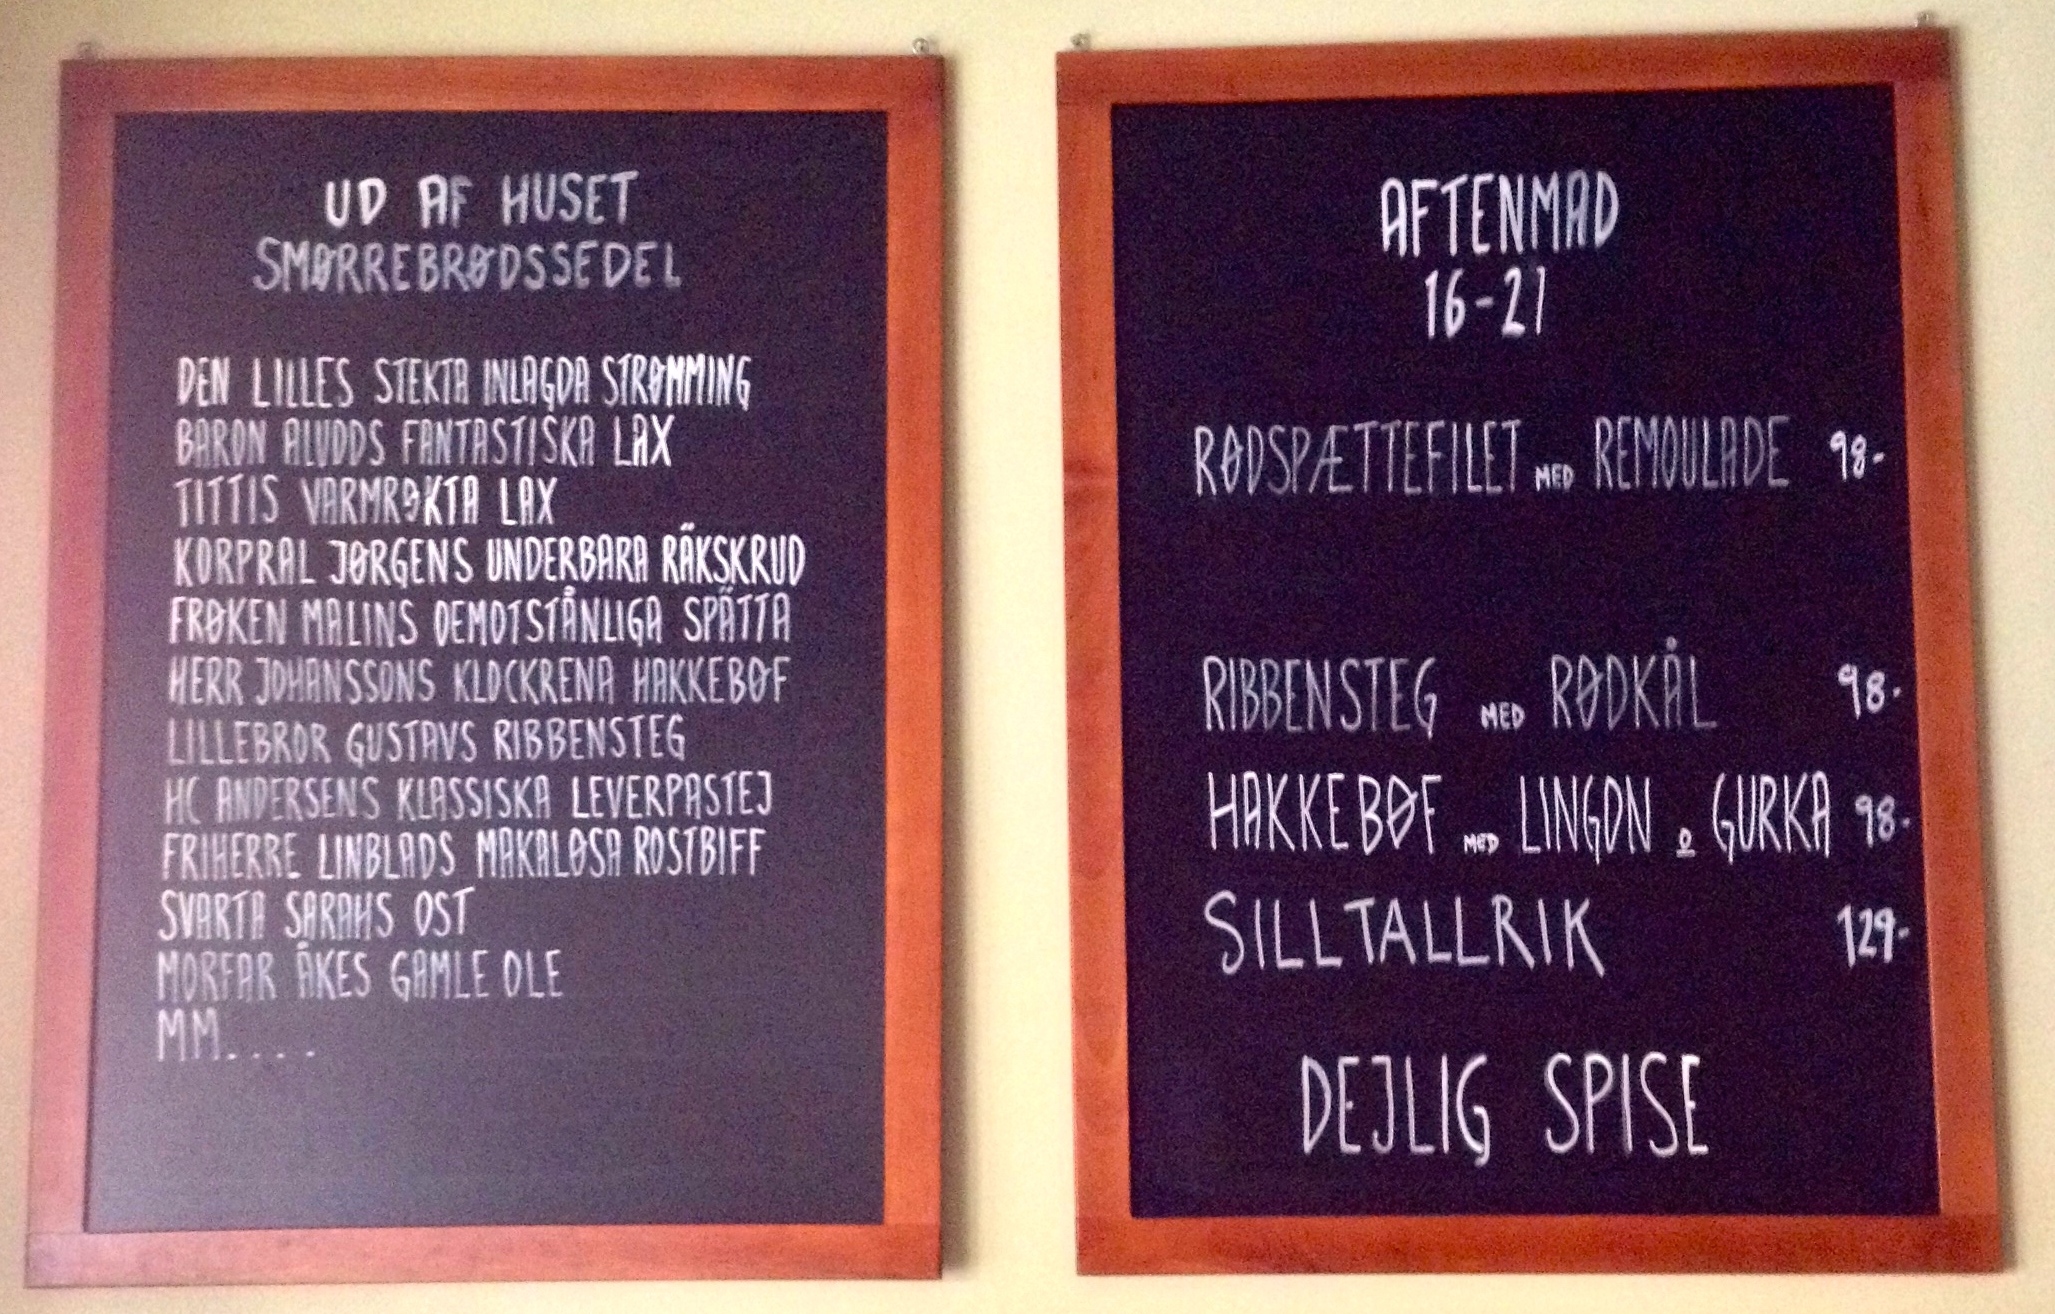 UD AF HUSET
SMØRREBRØDSSEDEL
DEN LILLES STEKTA INLAGDA STRØMMING
BARON ALUDDS FANTASTISKA LAX
TITTIS VARMRØKTA LAX
KORPRAL JØRGENS UNDERBARA RÄKSKRUD
FRØKEN MALINS OEMOTSTÅNLIGA SPÄTTA
HERR JOHANSSONS KLOCKRENA HAKKEBØF
LILLEBROR GUSTAVS RIBBENSTEG
HC ANDERSENS KLASSISKA LEVERPASTEJ
FRIHERRE LINBLADS MAKALØSA ROSTBIFF
SVARTA SARAHS OST
MORFAR ÅKES GAMLE OLE
MM....
AFTENMAD
16-21
RØDSPÆTTEFILET MED REMOULADE 98-
RIBBENSTEG MED RØDKÅL 98-
HAKKEBØF MED LINGON O GURKA 98-
SILLTALLRIK 129-
DEJLIG SPISE